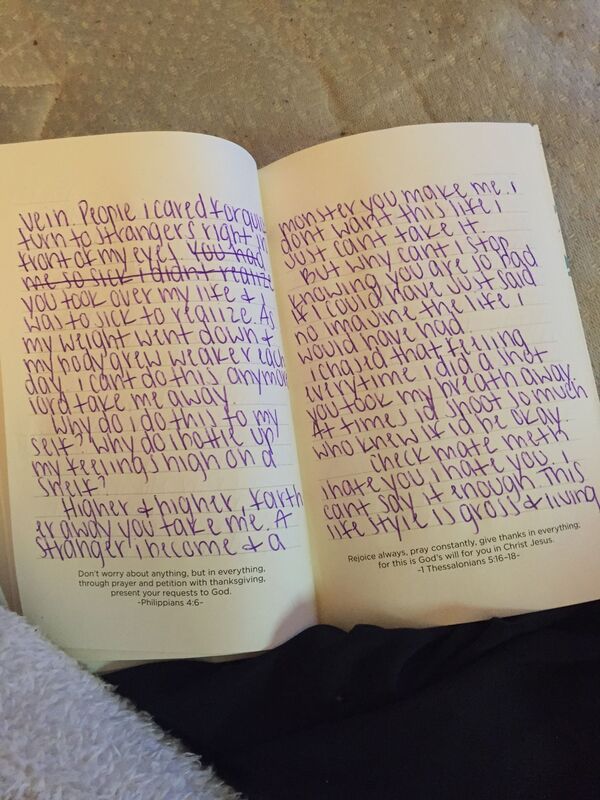 vein. People i cared for quic
turn to strangers right in
front of my eyes. you had
me so sick i didn't realize
you took over my life & I
was to sick to realize. As
my weight went down &
my body grew weaker each
day. i can't do this anymore
lord take me away
Why do i do this to my
self? Why do i bottle up
my feelings high on a
shelf?
Higher & higher, farth
er away you take me. A
stranger i become & a
Don't worry about anything, but in everything,
through prayer and petition with thanksgiving,
present your requests to God.
-Philippians 4:6-
monster you make me. i
dont want this life i
just cant take it.
But why cant i stop
knowing you are so bad
if i could have just said
no imagine the life i
would have had
i chased that feeling
everytime i did a shot
you took my breath away.
At times id shoot so much
who knew if id be okay.
check mate meth
i hate you i hate you. i
cant say it enough. This
life style is gross & living
Rejoice always, pray constantly, give thanks in everything;
for this is God's will for you in Christ Jesus.
-1 Thessalonians 5:16-18-